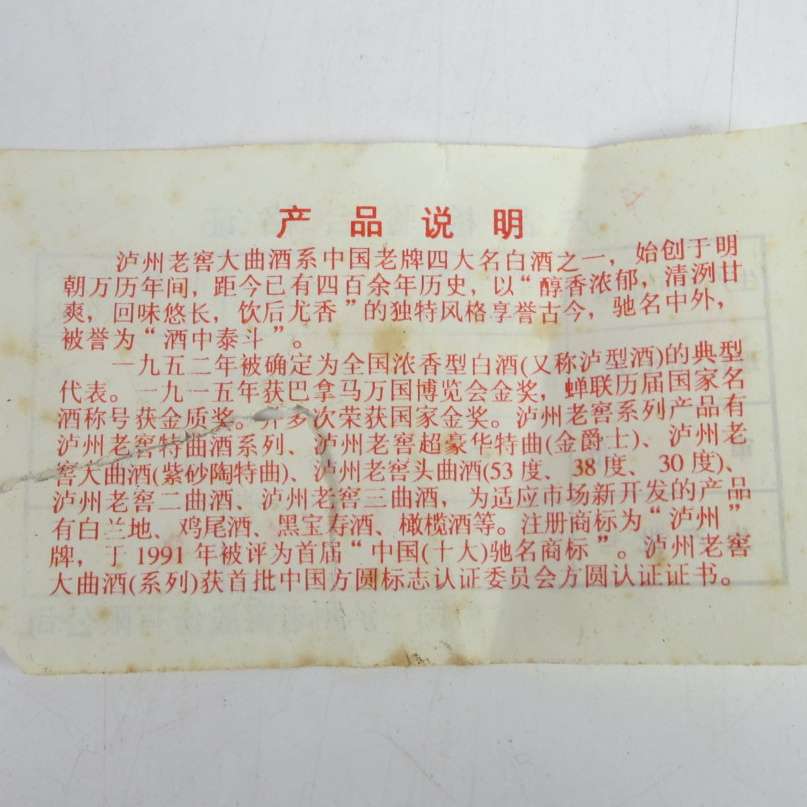 产品说明
泸州老窖大曲酒系中国老牌四大名白酒之一，始创于明
朝万历年间，距今已有四百余年历史，以“醇香浓郁，清洌甘
爽，回味悠长，饮后尤香”的独特风格享誉古今，驰名中外，
被誉为“酒中泰斗”。
一九五二年被确定为全国浓香型白酒(又称泸型酒)的典型
代表。一九一五年获巴拿马万国博览会金奖，蝉联历届国家名
酒称号获金质奖。并多次荣获国家金奖。泸州老窖系列产品有
泸州老窖特曲酒系列、泸州老窖超豪华特曲(金爵士)、泸州老
窖大曲酒(紫砂陶特曲)、泸州老窖头曲酒(53度、38度、30度)、
泸州老窖二曲酒、泸州老窖三曲酒，为适应市场新开发的产品
有白兰地、鸡尾酒、黑宝寿酒、橄榄酒等。注册商标为“泸州”
牌，于1991年被评为首届“中国(十大)驰名商标”。泸州老窖
大曲酒(系列)获首批中国方圆标志认证委员会方圆认证证书。